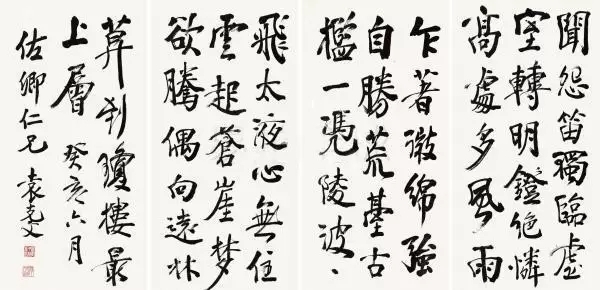 聞怨笛獨臨虛
室轉明鐙絕憐
高處多風雨
乍著微綿強
自勝荒臺古
檻一凭陵波
飛太液心無住
雲起蒼崖夢
欲騰偶向遠林
莫到瓊樓最
上層 癸亥六月
佐卿仁兄 袁克文